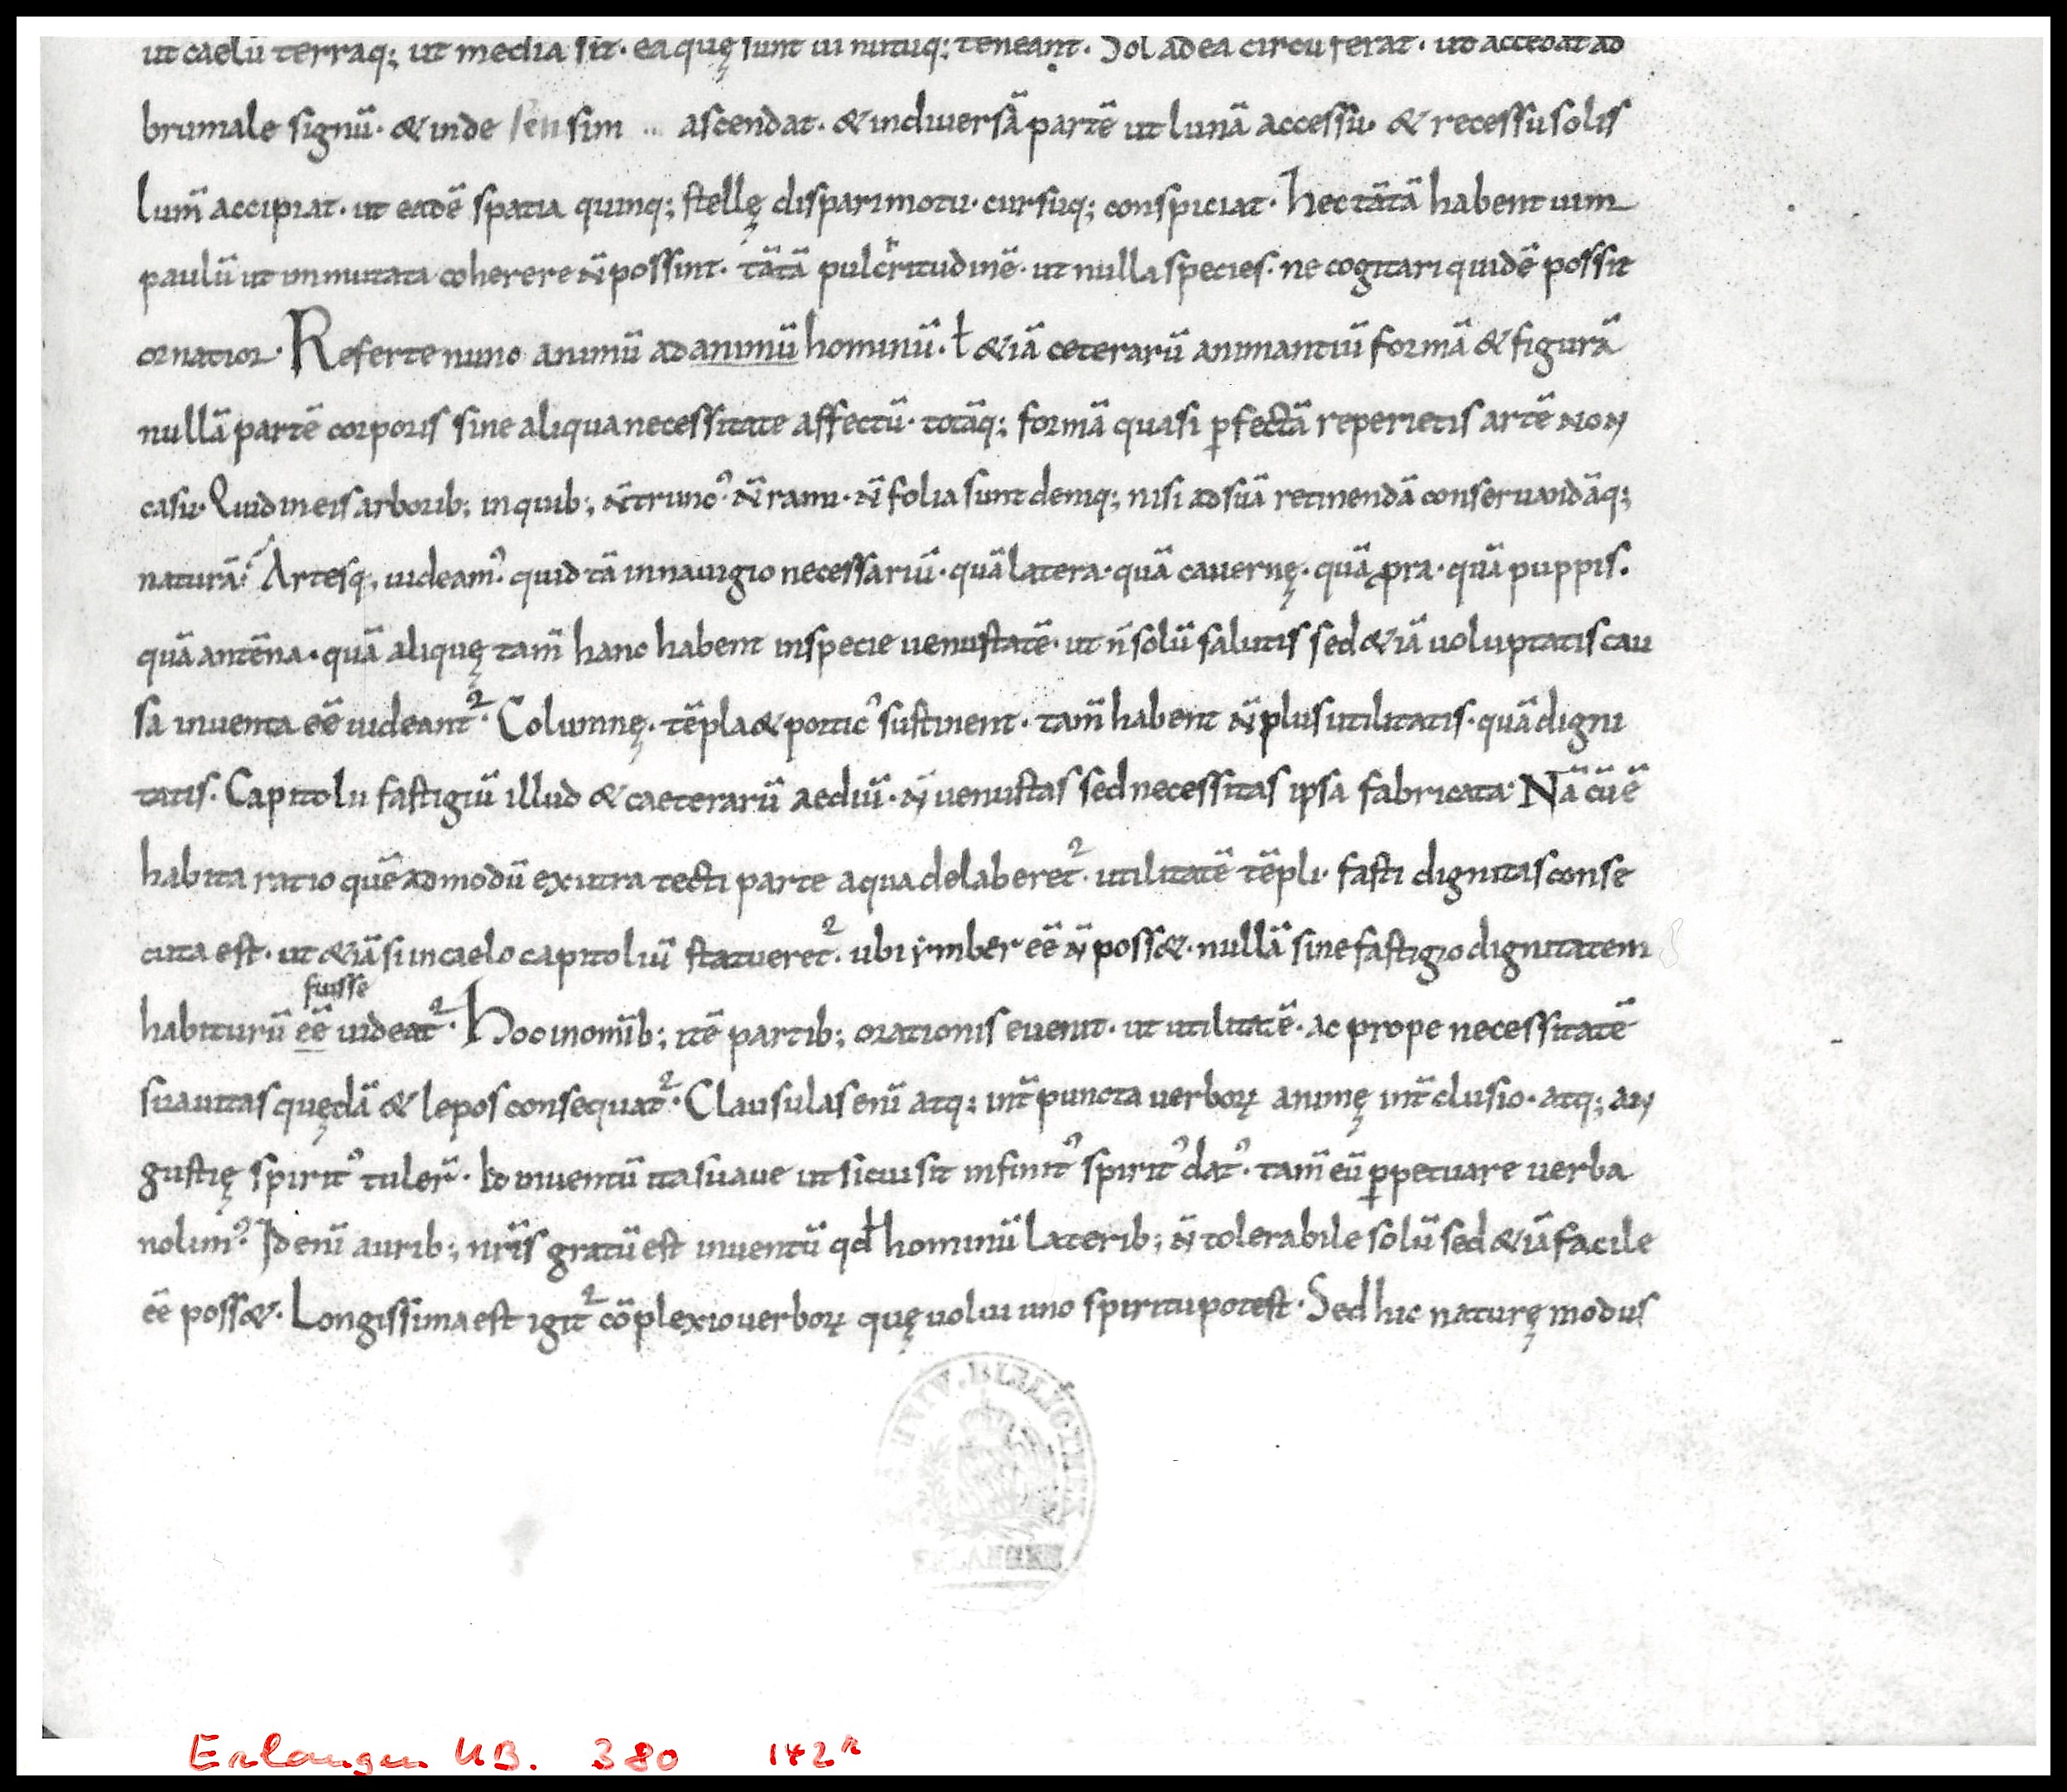 ut caelū terraq; ut media sit· ea quę sunt ui nutuq; teneant· Sol ad ea circu ferat· ut accedat ad
brumale signū· & inde sen sim ascendat· & in diuersā partē ut lunā accessu· & recessu solis
lum̄ accipiat· ut eadē spatia quinq; stellę dispari motu· cursuq; conspiciat· hec tātā habent uim
paulū ut inmutata coherere n̄ possint· tātā pulcritudinē· ut nulla species· ne cogitari quidē possit
ornatior· Referte nunc animū ad animū hominū· ł &iā ceterarū animantiū formā & figurā
nullā partē corporis sine aliqua necessitate affectū· totāq; formā quasi ꝑfectā reperietis artē non
casu· Quid in eis arborib; in quib; n̄ trunc᾽ n̄ rami· n̄ folia sunt deniq; nisi ad suā retinendā conseruandāq;
naturā· Artesq, uideam᾽ quid tā in nauigio necessariū· quā latera· quā cauernę· quā ꝓra· quā puppis.
quā antēna· quā aliquę tam̄ hanc habent in specie uenustatē· ut n̄ solū salutis sed &iā uoluptatis cau
sa inuenta eē uideant²· Columnę· tēpla & portic᾽ sustinent· tam̄ habent n̄ plus utilitatis· quā digni
tatis· Capitolii fastigiū illud & caeterarū aediū· n̄ uenustas sed necessitas ipsa fabricata· Nā cū ē
habita ratio quē ad modū ex utra tecti parte aqua delaberet²· utilitatē tēpli· fasti dignitas conse
cuta est· ut &iā si in caelo capitoliū statueret²· ubi imber eē n̄ poss&· nullā sine fastigio dignitatem
fuisse
habiturū eē uideat²· Hoc in om̄ib; itē partib; orationis euenit· ut utilitatē· ac prope necessitatē
suauitas quędā & lepos consequat²· Clausulas enī atq; int̄ puncta uerboꝝ animę int̄clusio· atq; an
gustię spirit᾽ tuler̄· Id inuentū ita suaue ut si cui sit infinit᾽ spirit᾽ dat᾽· tam̄ eū ꝑpetuare uerba
nolim᾽· Id enī aurib; nr̄is gratū est inuentū qđ hominū laterib; n̄ tolerabile solū sed &iā facile
eē poss&· Longissima est igit² cōplexio uerboꝝ quę uolui uno spiritu potest· Sed hic naturę modus
UNIV. BIBLIOTHEK
ERLANGEN
Erlangen UB. 380 142ʳ